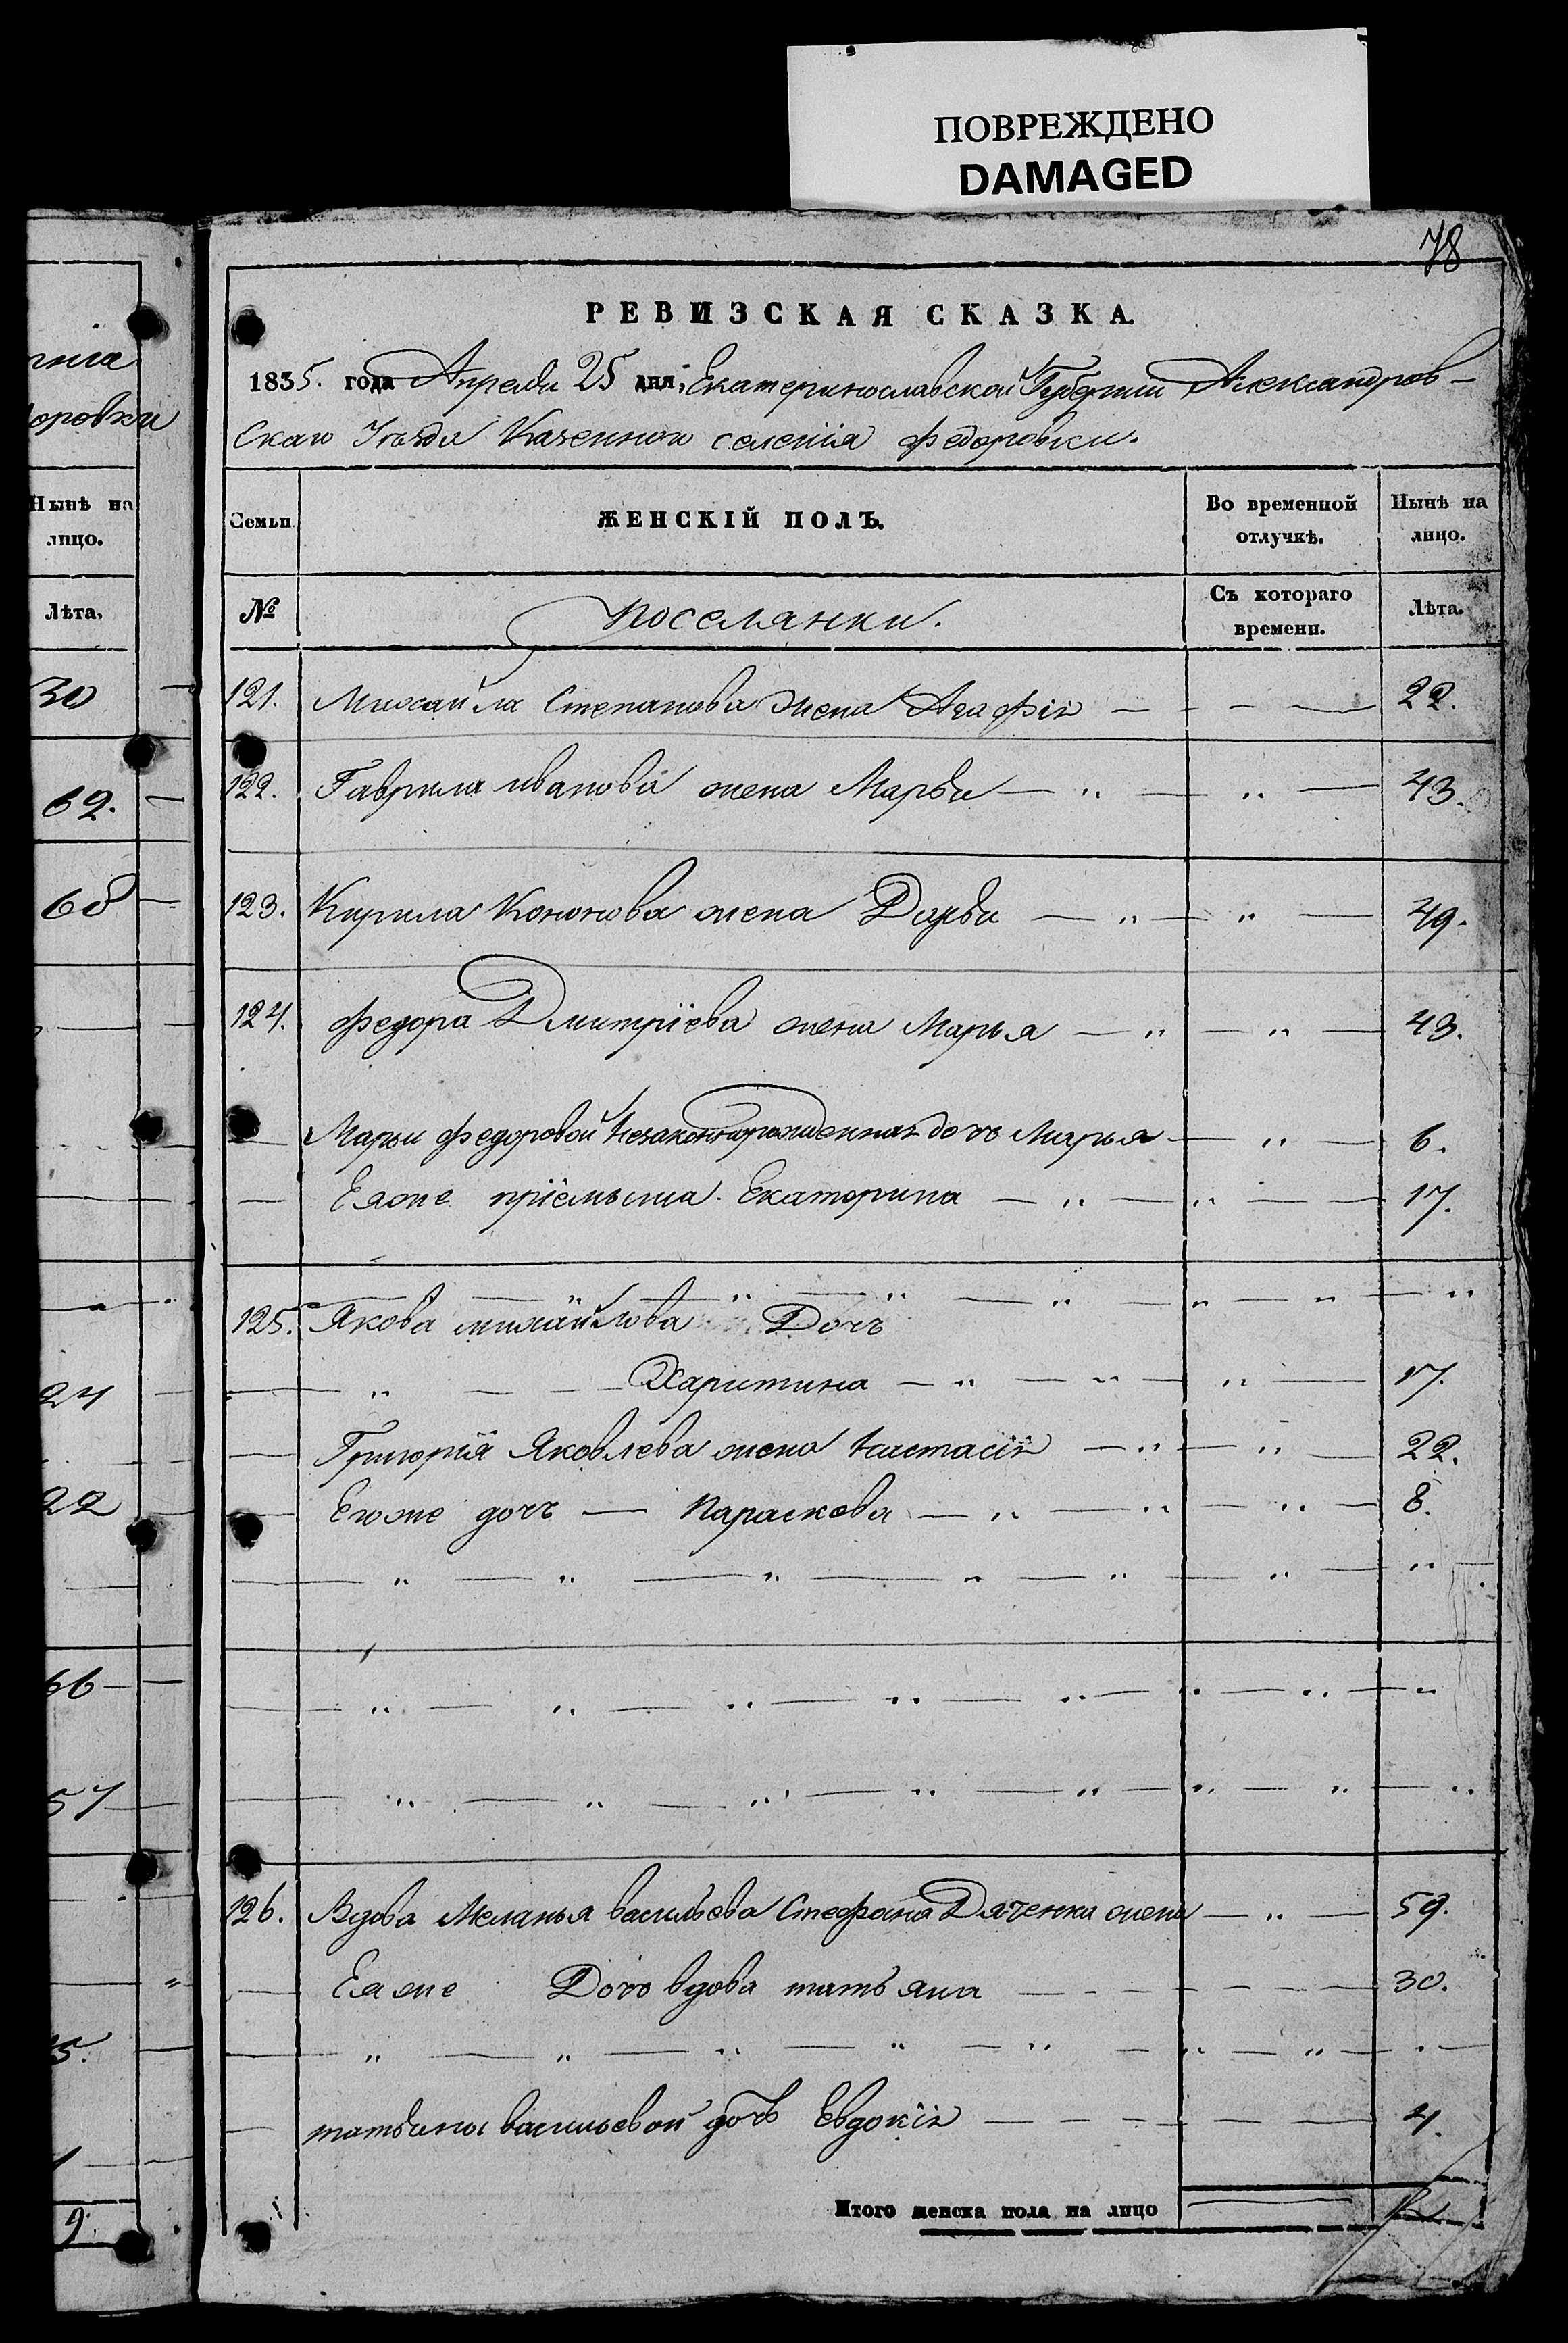 ПОВРЕЖДЕНО
DAMAGED
78
РЕВИЗСКАЯ СКАЗКА.
1835. года Апреля 25 дня, Екатеринославской Губернии Александров-
скаго Уезда Казеннои селенія Федоровки.
Семьи
ЖЕНСКІЙ ПОЛЪ.
Во временной отлучкѣ.
Нынѣ на лицо.
№
Поселянки.
Съ котораго времени.
Лѣта.
121. Михайла Степанова Жена Агафія — 22.
122. Гаврила иванова жена Марья — 43.
123. Кирила Кононова жена Дарья — 49.
124. Федора Дмитріева жена Марья — 43.
Марьи Федоровой Незаконнорожденная дочь Марья — 6.
Еяже пріемыша. Екатерина — 17.
125. Якова михайлова Дочь
Харитина — 17.
Григорія Яковлева жена Настасія — 22.
Егоже дочь — Параскева — 8.
126. Вдова Меланья васильева Стефана Дяченка жена — 59.
Еяже Дочь вдова татьяна — 30.
татьяны васильевой дочь Евдокія — 4.
Итого женска пола на лицо
нія
оровки
Нынѣ на лицо.
Лѣта.
30
62.
68
24
22
66
57
5.
9